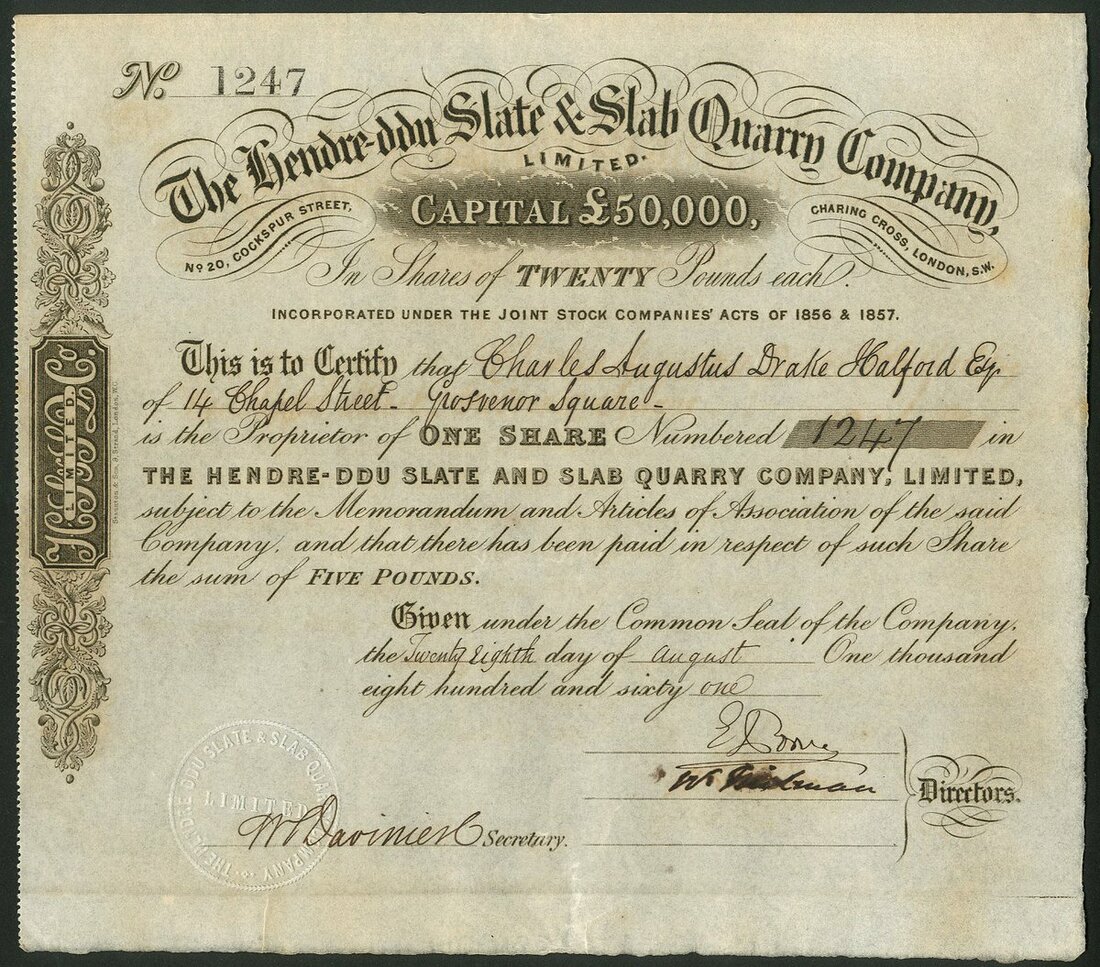 No. 1247
The Hendre-ddu Slate & Slab Quarry Company,
LIMITED.
CAPITAL £50,000,
No 20, COCKSPUR STREET,
CHARING CROSS, LONDON, S.W.
In Shares of TWENTY Pounds each.
INCORPORATED UNDER THE JOINT STOCK COMPANIES' ACTS OF 1856 & 1857.
This is to Certify that Charles Augustus Drake Halford Esq
of 14 Chapel Street - Grosvenor Square -
is the Proprietor of ONE SHARE Numbered 1247 in
THE HENDRE-DDU SLATE AND SLAB QUARRY COMPANY, LIMITED,
subject to the Memorandum and Articles of Association of the said
Company, and that there has been paid in respect of such Share
the sum of FIVE POUNDS.
Given under the Common Seal of the Company,
the Twenty Eighth day of August One thousand
eight hundred and sixty one
Directors.
Secretary.
THE HENDRE DDU SLATE & SLAB QUARRY COMPANY
LIMITED
LIMITED.